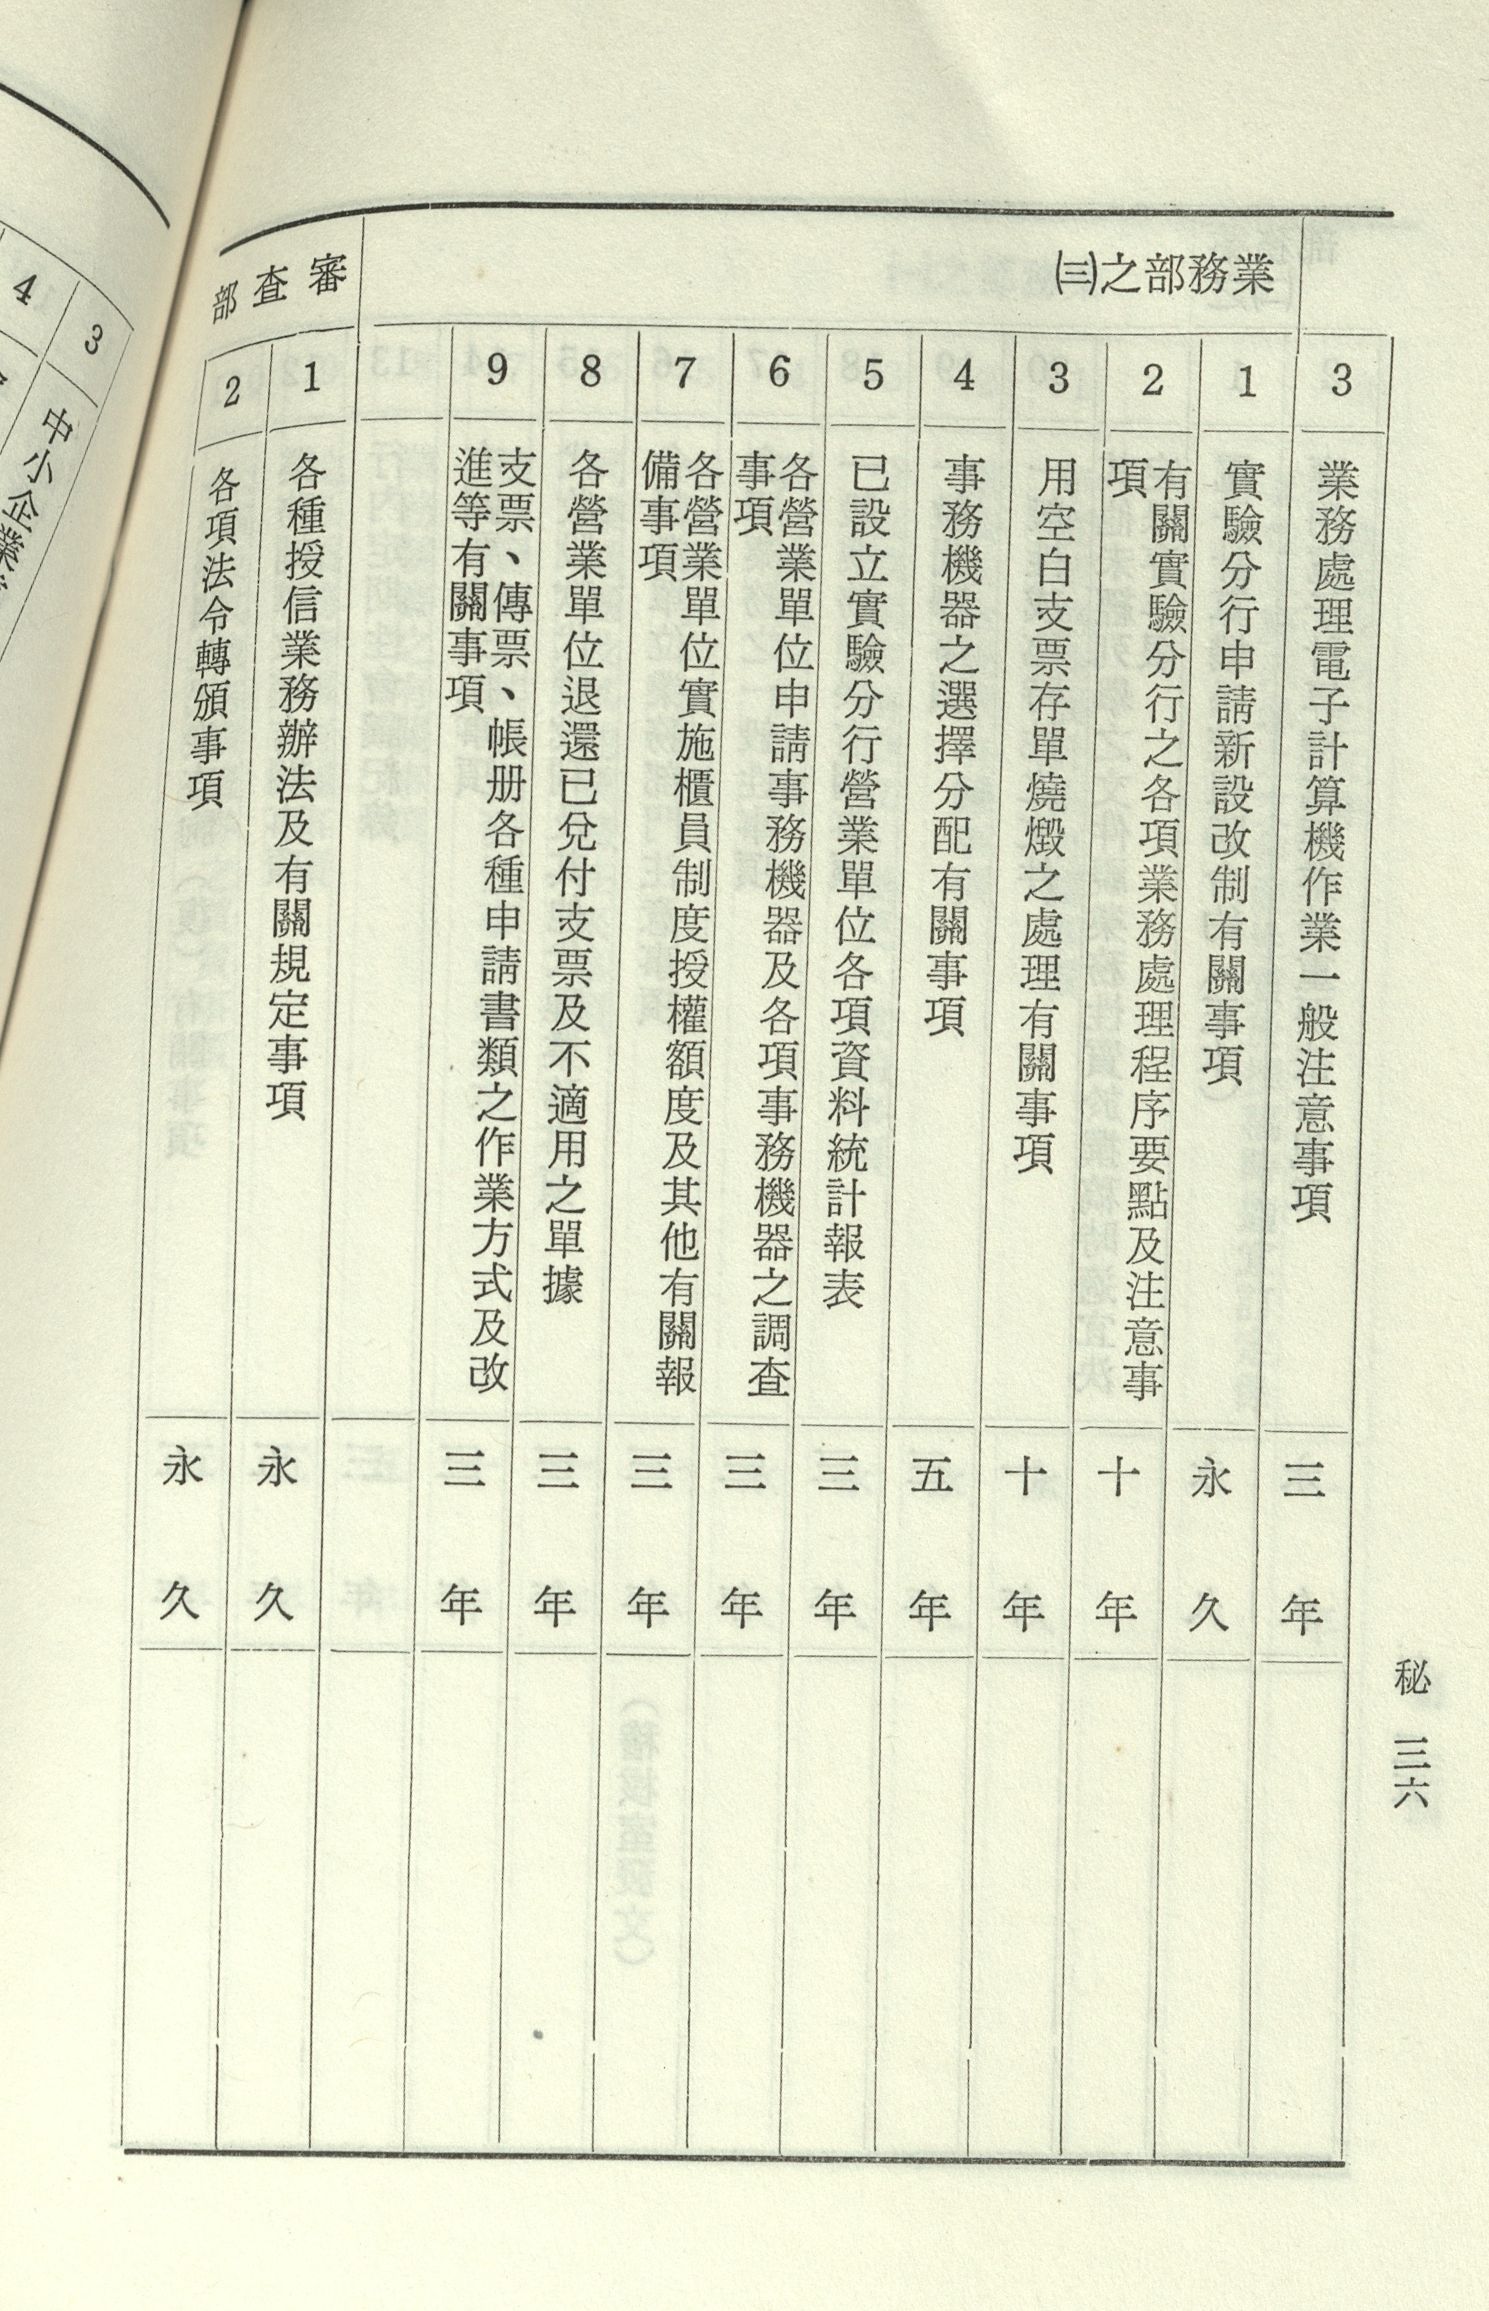 秘 三六
3
業務處理電子計算機作業一般注意事項
三年
業務部之㈢
1
實驗分行申請新設改制有關事項
永久
2
有關實驗分行之各項業務處理程序要點及注意事
項
十年
3
用空白支票存單燒燬之處理有關事項
十年
4
事務機器之選擇分配有關事項
五年
5
已設立實驗分行營業單位各項資料統計報表
三年
6
各營業單位申請事務機器及各項事務機器之調查
事項
三年
7
各營業單位實施櫃員制度授權額度及其他有關報
備事項
三年
8
各營業單位退還已兌付支票及不適用之單據
三年
9
支票、傳票、帳册各種申請書類之作業方式及改
進等有關事項
三年
審查部
1
各種授信業務辦法及有關規定事項
永久
2
各項法令轉頒事項
永久
3
中小企業
4